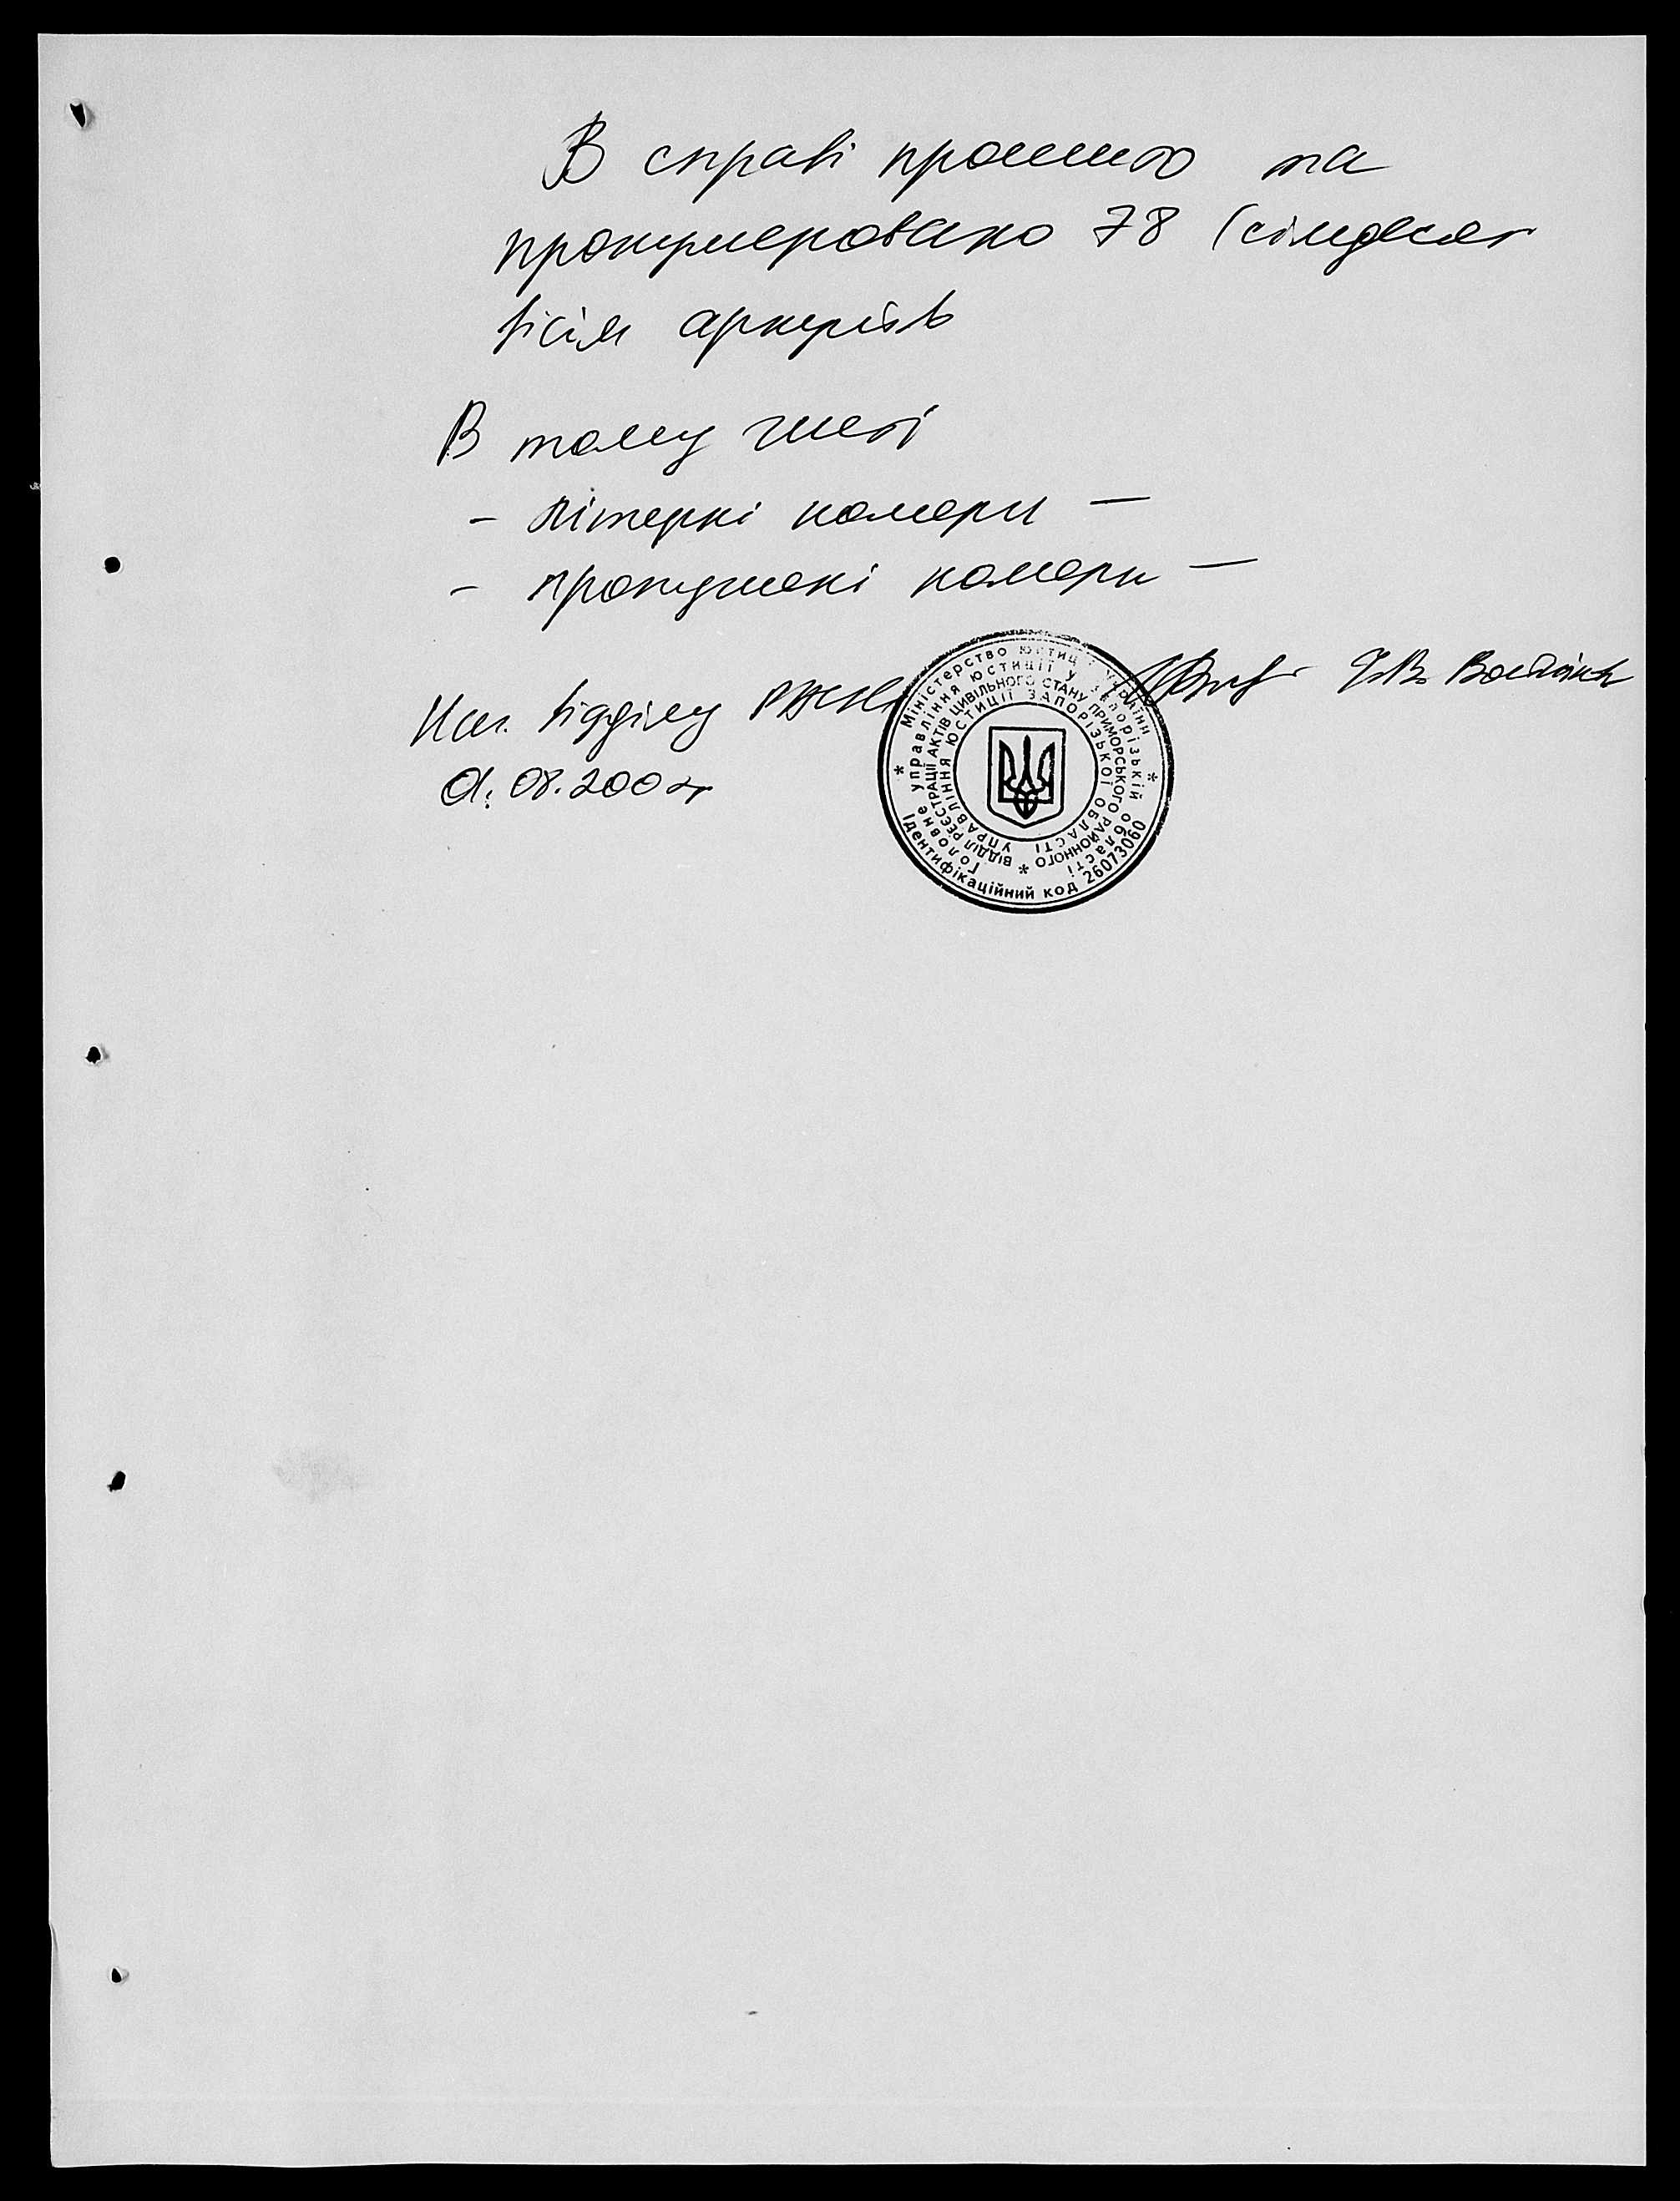 В справі прошито та
пронумеровано 78 (сімдесят
вісім аркушів
В тому числі
- літерні номери —
- пропущені номери —
Нач. відділу РАЦС
08.200
Міністерство юстиції України
Головне управління юстиції у Запорізькій області
ВІДДІЛ РЕЄСТРАЦІЇ АКТІВ ЦИВІЛЬНОГО СТАНУ ПРИМОРСЬКОГО РАЙОННОГО
УПРАВЛІННЯ ЮСТИЦІЇ ЗАПОРІЗЬКОЇ ОБЛАСТІ
Ідентифікаційний код 26073060